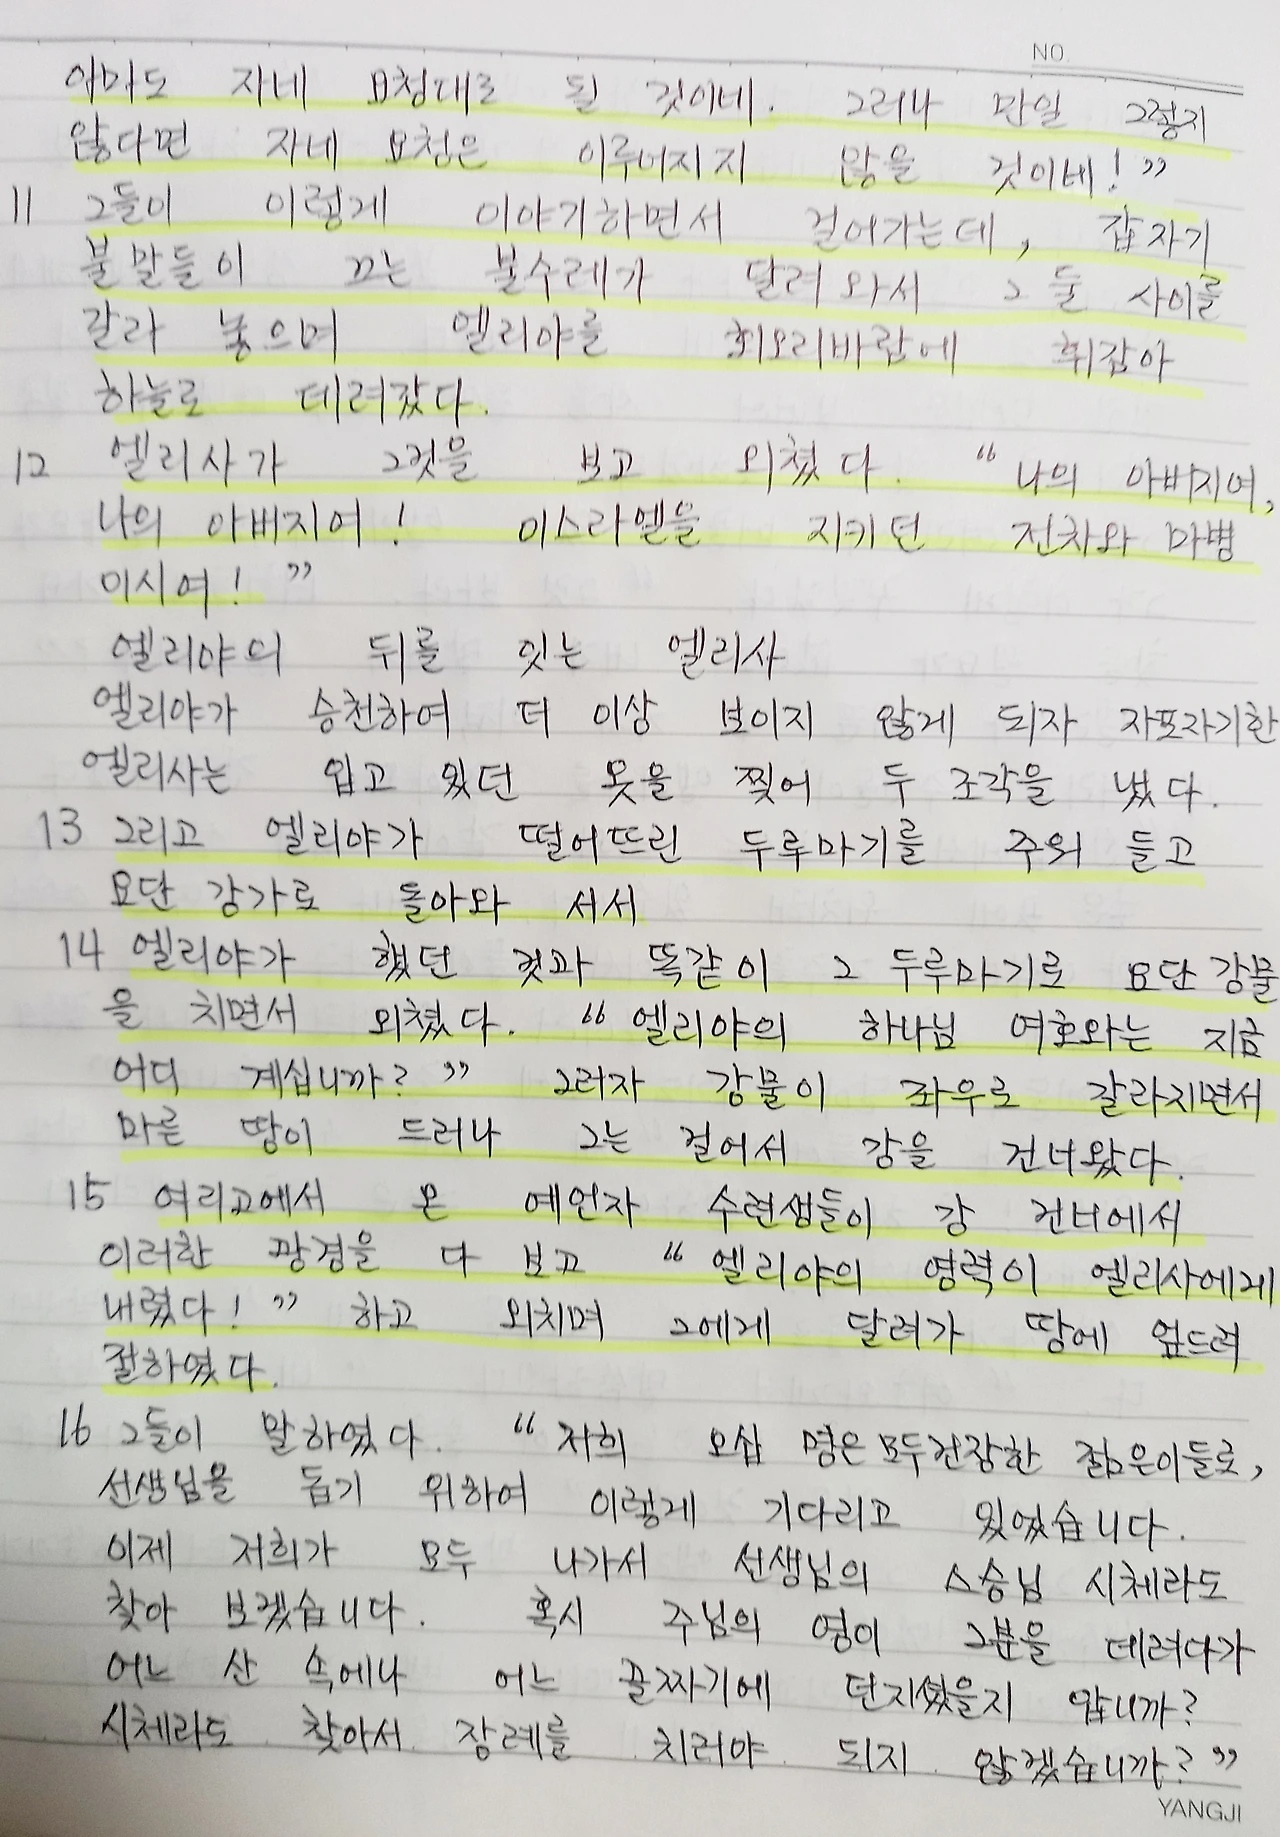 NO.
아마도 자네 요청대로 될 것이네. 그러나 만일 그렇지
않다면 자네 요청은 이루어지지 않을 것이네!”
11 그들이 이렇게 이야기하면서 걸어가는데, 갑자기
불말들이 끄는 불수레가 달려와서 그 둘 사이를
갈라 놓으며 엘리야를 회오리바람에 휘잡아
하늘로 데려갔다.
12 엘리사가 그것을 보고 외쳤다. “나의 아버지여,
나의 아버지여! 이스라엘을 지키던 전차와 마병
이시여!”
엘리야의 뒤를 잇는 엘리사
엘리야가 승천하여 더 이상 보이지 않게 되자 자포자기한
엘리사는 입고 있던 옷을 찢어 두 조각을 냈다.
13 그리고 엘리야가 떨어뜨린 두루마기를 주워 들고
요단 강가로 돌아와 서서
14 엘리야가 했던 것과 똑같이 그 두루마기로 요단 강물
을 치면서 외쳤다. “엘리야의 하나님 여호와는 지금
어디 계십니까?” 그러자 강물이 좌우로 갈라지면서
마른 땅이 드러나 그는 걸어서 강을 건너왔다.
15 여리고에서 온 예언자 수련생들이 강 건너에서
이러한 광경을 다 보고 “엘리야의 영력이 엘리사에게
내렸다!” 하고 외치며 그에게 달려가 땅에 엎드려
절하였다.
16 그들이 말하였다. “저희 오십 명은 모두 건장한 젊은이들로,
선생님을 돕기 위하여 이렇게 기다리고 있었습니다.
이제 저희가 모두 나가서 선생님의 스승님 시체라도
찾아 보겠습니다. 혹시 주님의 영이 그분을 데려다가
어느 산 속에나 어느 골짜기에 던지셨을지 압니까?
시체라도 찾아서 장례를 치러야 되지 않겠습니까?”
YANGJI